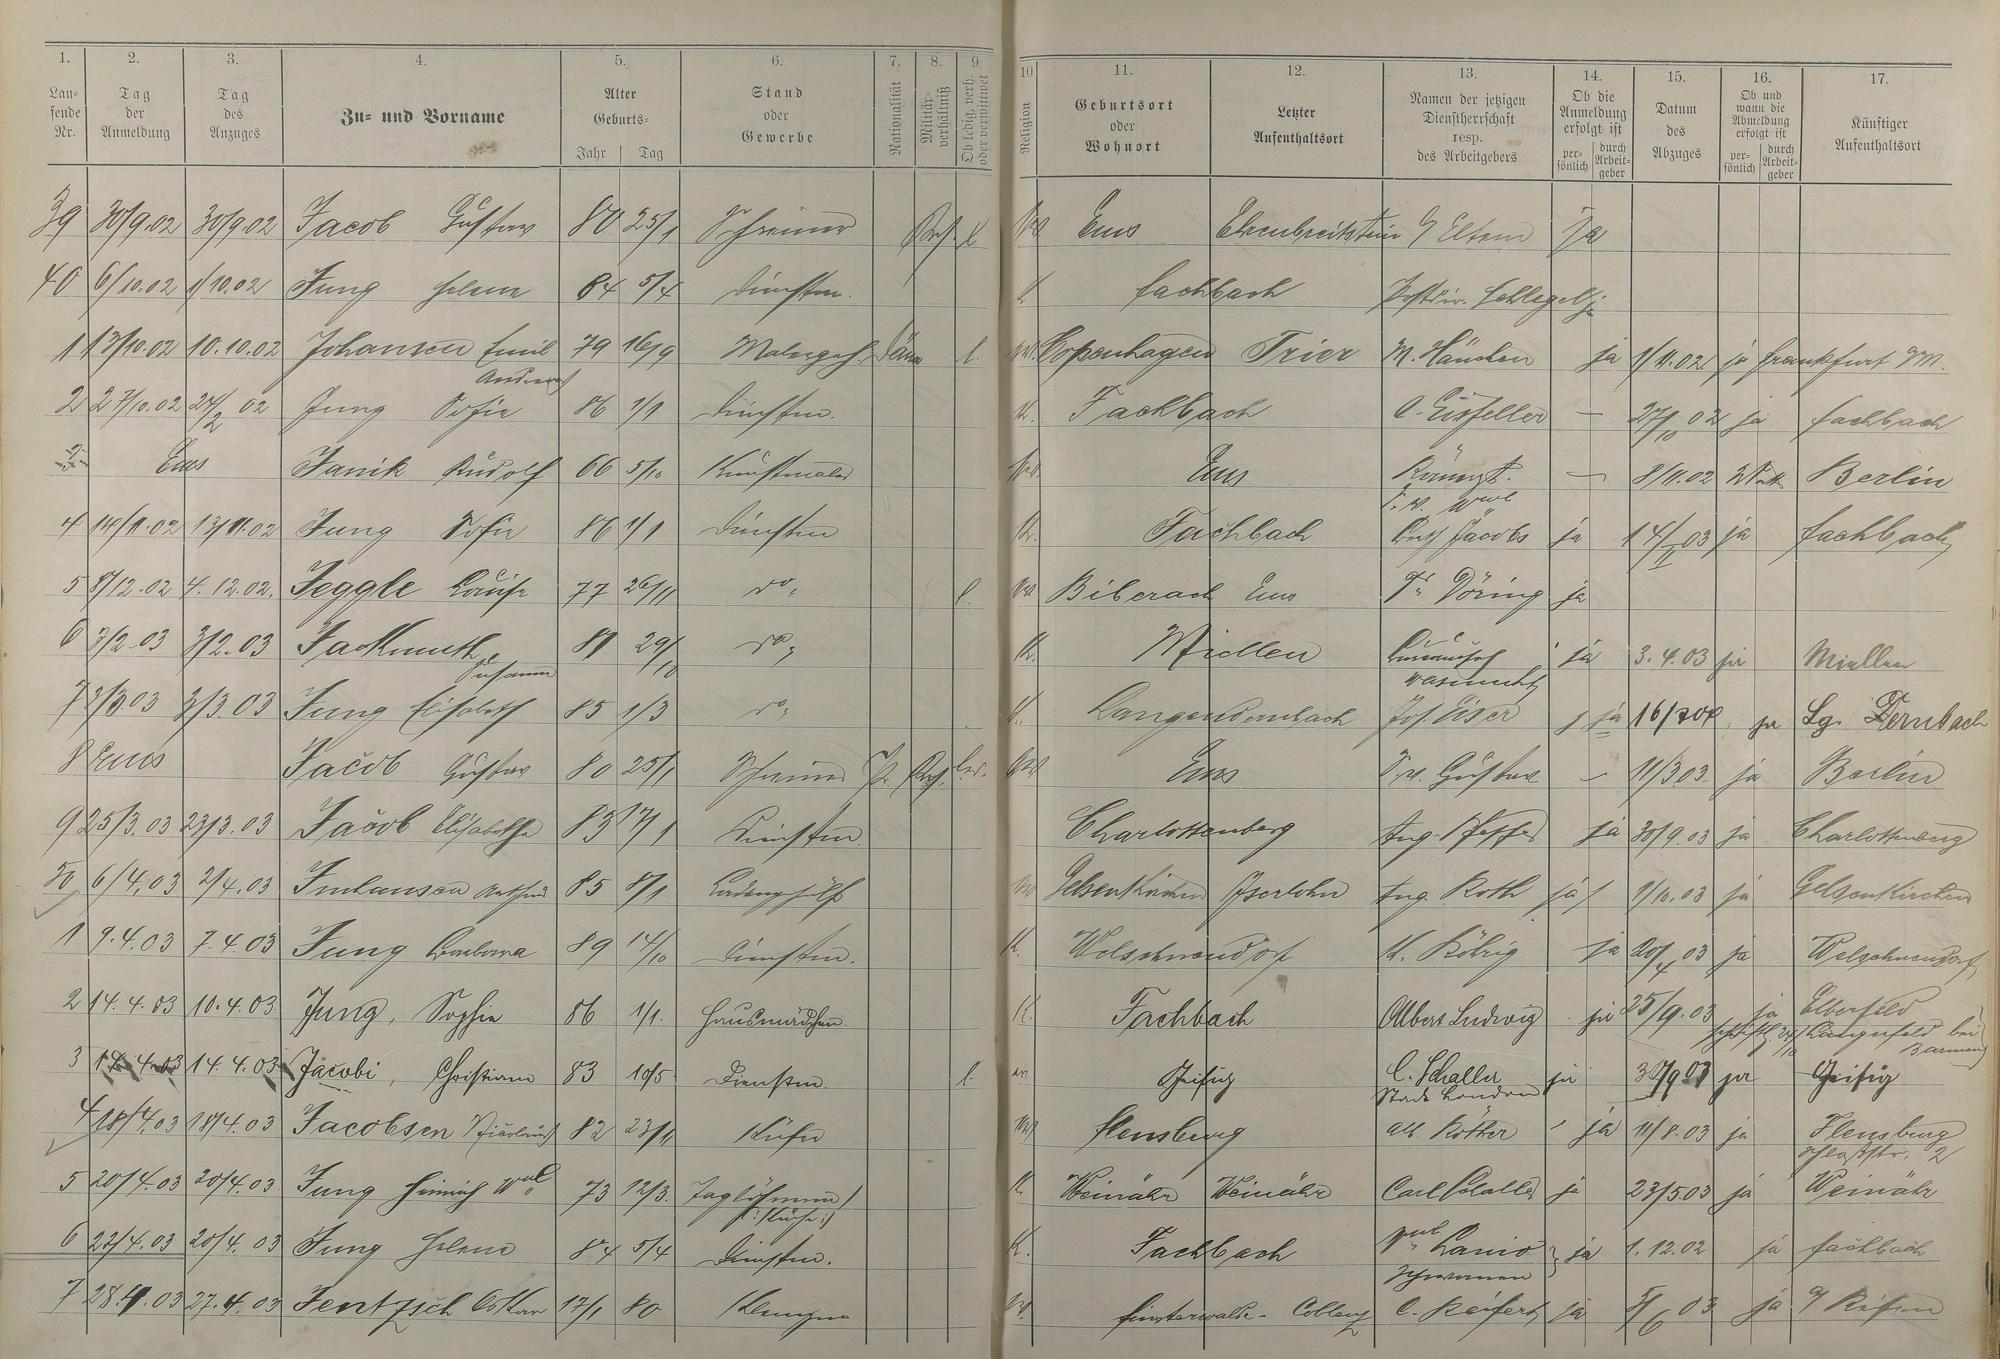 1. 2. 3. 4. 5. 6. 7. 8. 9. 10 11. 12. 13. 14. 15. 16. 17.
Laufende Nr. Tag der Anmeldung Tag des Anzuges Zu- und Vorname Alter Geburts- Jahr Tag Stand oder Gewerbe Nationalität Militärverhältniß Ob ledig, verh. oder verwittwet Religion Geburtsort oder Wohnort Letzter Aufenthaltsort Namen der jetzigen Dienstherrschaft resp. des Arbeitgebers Ob die Anmeldung erfolgt ist persönlich durch Arbeitgeber Datum des Abzuges Ob und wann die Abmeldung erfolgt ist persönlich durch Arbeitgeber Künftiger Aufenthaltsort
39 30/9.02 30/9.02 Jacob Gustav 80 25/1 Schreiner l Ems Ehrenbreitstein Eltern Ja
40 6/10.02 1/10.02 Jung Helene 84 5/4 Dienstm. K Fachbach Schlegel ja
1 13/10.02 10.10.02 Johansen Emil 79 16/9 Malergeh. l. Copenhagen Trier M. Häuchen ja 1/11.02 ja Frankfurt a/M.
Andreas
2 27/10.02 24/2 02 Jung Sofie 86 1/1 Dienstm. K. Fachbach C. Eisfeller — 27/10 02 ja Fachbach
3 Ems Janik Rudolf 66 5/10 Kunstmaler Ems — 8/11.02 Berlin
4 14/11.02 13/11.02 Jung Sofie 86 1/1 Dienstm K. Fachbach Jacobs ja 14/1 03 ja Fachbach
5 8/12.02 4.12.02. Jeggle Louise 77 26/11 do l. Biberach Ems Fr. Döring ja
6 3/2.03 3/2.03 Jackmuth 81 29/10 do K. Miellen ja 3.4.03 ja Miellen
Susanna
7 2/3.03 2/3.03 Jung Elisabeth 85 1/3 do K. Langendernbach Jos. Eiser ja ja Lg. Dernbach
8 Ems Jacob Gustav 80 25/1 Schreiner Pr. led. Ems Gustav — 11/3.03 ja Berlin
9 25/3.03 23/3.03 Jacob Elisabetha 83 17/1 Dienstm. Charlottenberg Aug. Pfeffer ja 30/9.03 ja Charlottenberg
50 6/4.03 2/4.03 Imhansen Arthur 85 8/1 Gelsenkirchen Iserlohn Aug. Roth ja 1/10.03 ja Gelsenkirchen
1 9.4.03 7.4.03 Jung Barbara 89 14/10 Dienstm. K. Welschneudorf M. Röhrig ja 20/4 03 ja Welschneudorf
2 14.4.03 10.4.03 Jung, Sophie 86 1/1. Hausmädchen. K. Fachbach Albert Ludwig ja 25/9.03 ja Elberfeld
Langenfeld bei Barmen
3 14.4.03 14.4.03 Jacobi, Christiane 83 10/5 Dienstm. l. Geisig C. Schaller ja 30/9 03 ja Geisig
Stadt London
4 18/4.03 18/4.03 Jacobsen Nicolaus 82 23/11 Küfer Flensburg Alb. Röther ja 11/8.03 ja Flensburg
Schloßstr. 2
5 20/4.03 20/4.03 Jung Heinrich Wwe 73 12/3. Taglöhnerin K. Weinähr Weinähr Carl Schaller ja 23/5.03 ja Weinähr
6 22/4.03 20/4.03 Jung Helene 84 5/4 Dienstm. K. Fachbach Lanio ja 1.12.02 ja Fachbach
7 28.4.03 27.4.03 Jentzsch Oskar 17/1 80 Klempner Finsterwalde Coblenz C. Reifert ja 5/6 03 ja